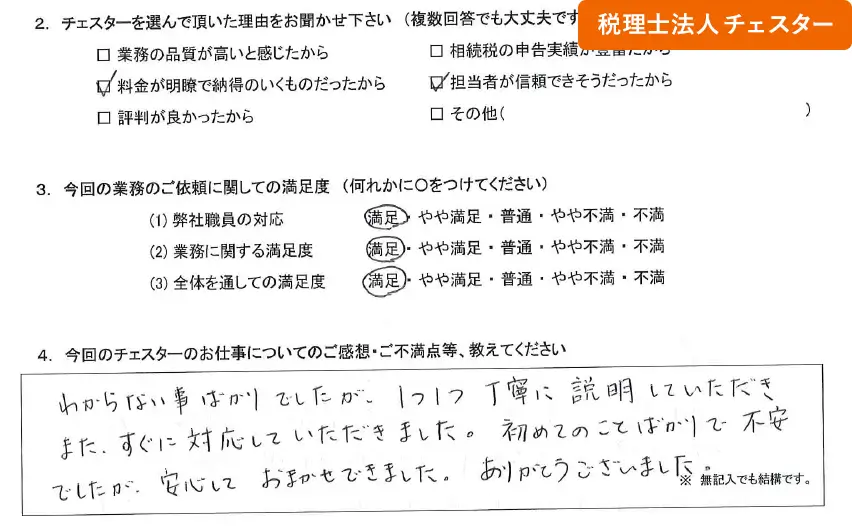 税理士法人チェスター
2. チェスターを選んで頂いた理由をお聞かせ下さい (複数回答でも大丈夫です
□ 業務の品質が高いと感じたから □ 相続税の申告実績が豊富だから
☑ 料金が明瞭で納得のいくものだったから ☑ 担当者が信頼できそうだったから
□ 評判が良かったから □ その他( )
3. 今回の業務のご依頼に関しての満足度 (何れかに○をつけてください)
(1) 弊社職員の対応 満足・やや満足・普通・やや不満・不満
(2) 業務に関する満足度 満足・やや満足・普通・やや不満・不満
(3) 全体を通しての満足度 満足・やや満足・普通・やや不満・不満
4. 今回のチェスターのお仕事についてのご感想・ご不満点等、教えてください
わからない事ばかりでしたが、1つ1つ丁寧に説明していただき
また、すぐに対応していただきました。初めてのことばかりで不安
でしたが、安心しておまかせできました。ありがとうございました。
※ 無記入でも結構です。